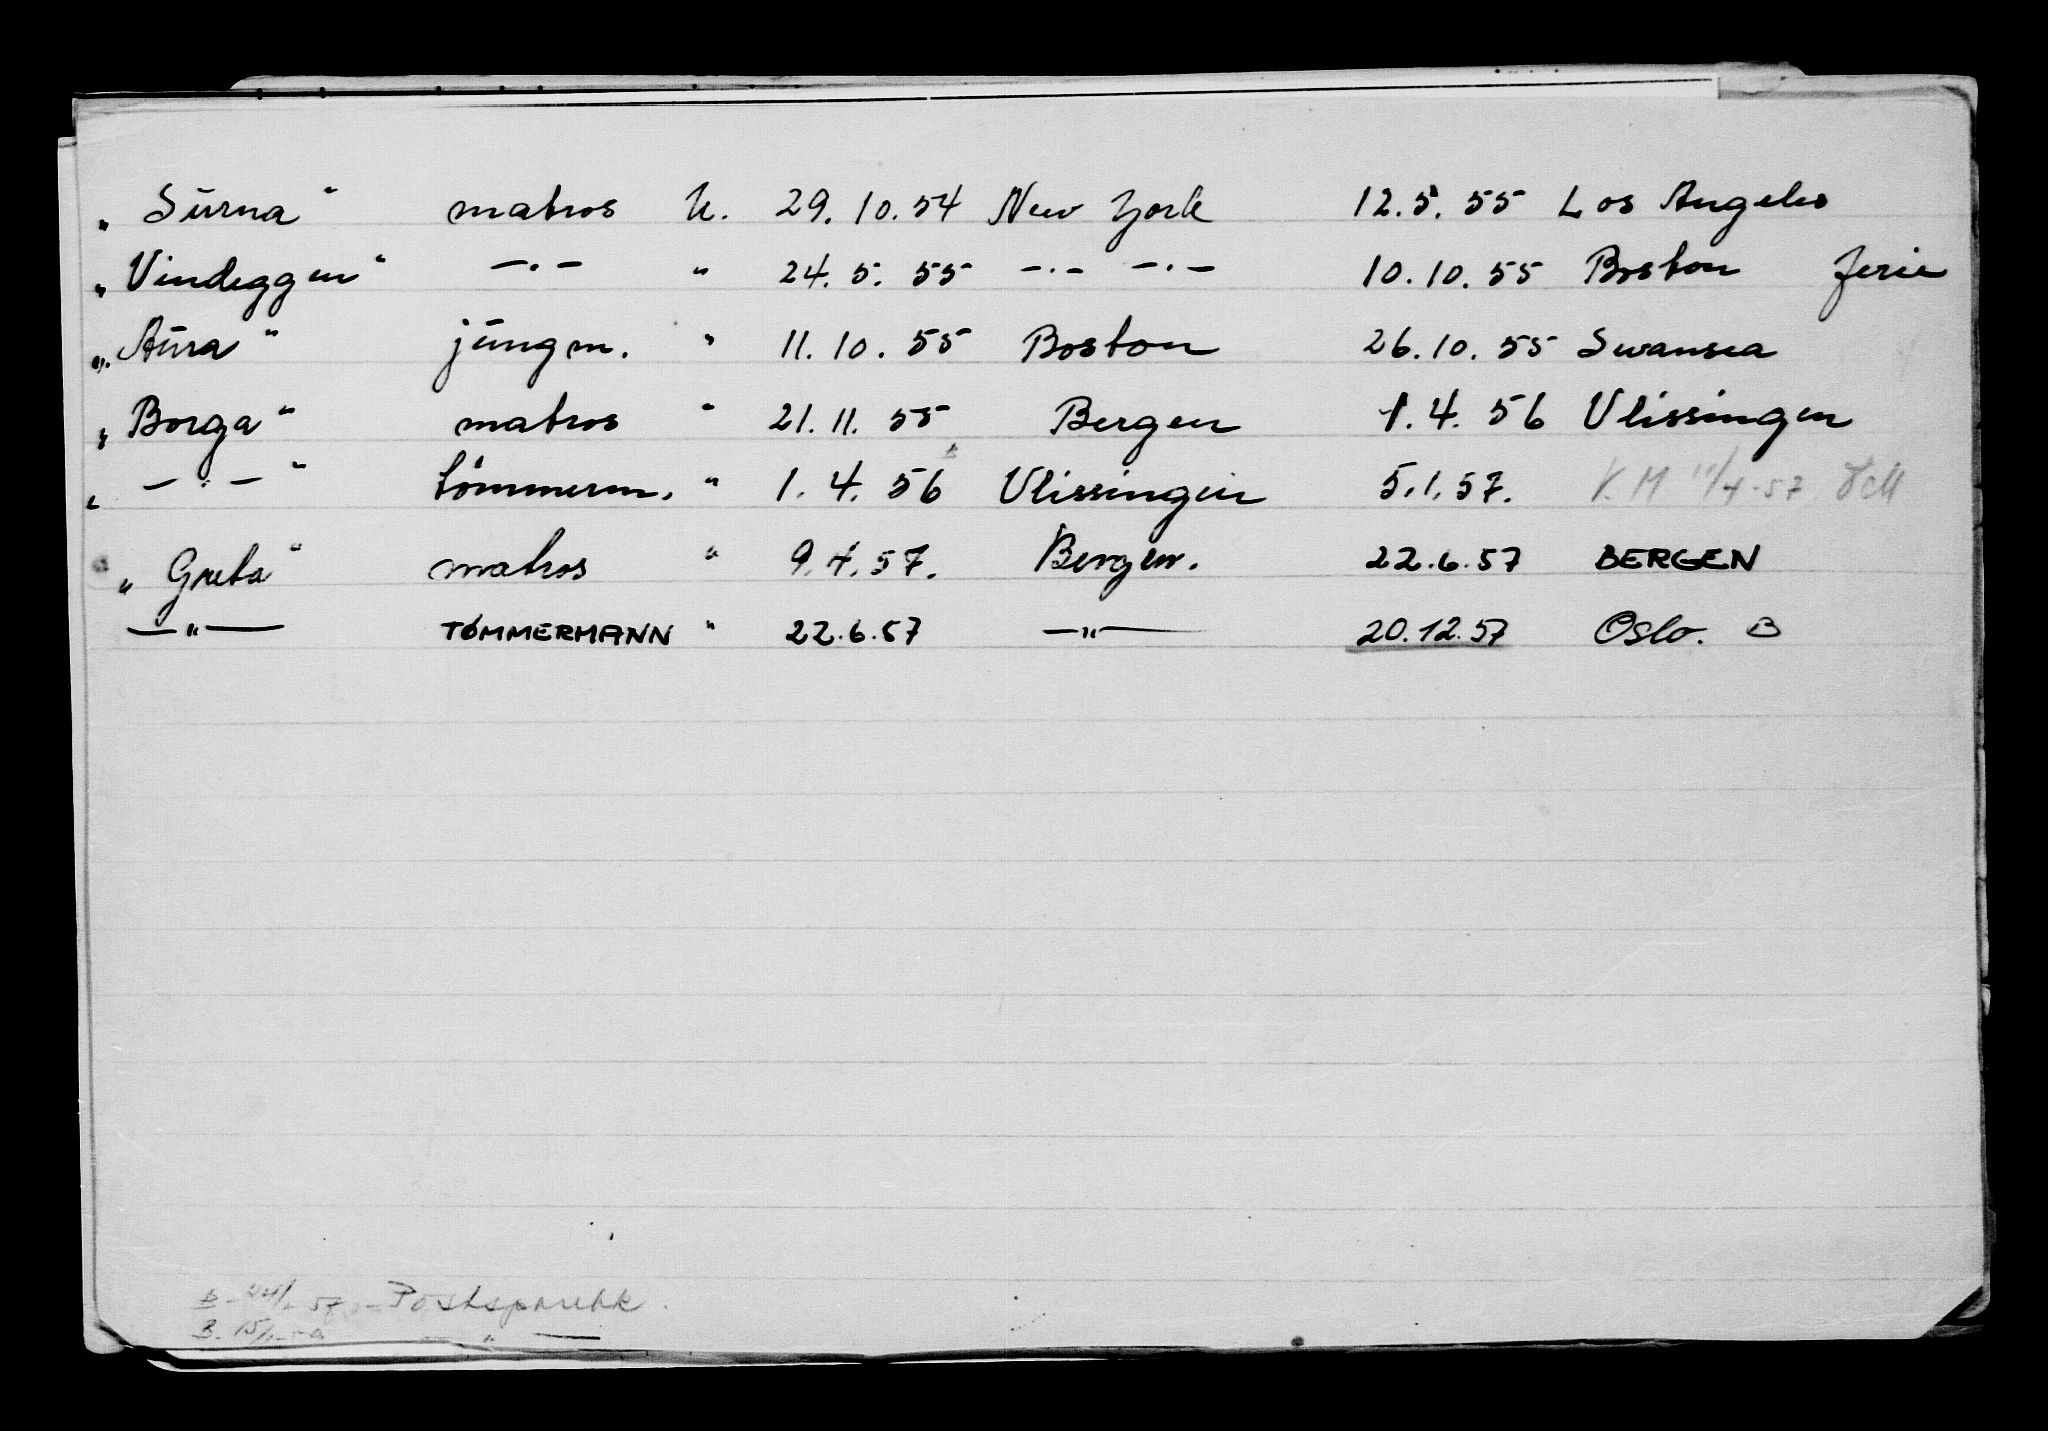 „ Surna " matros U. 29.10.54 New York 12.5.55 Los Angeles
„ Vindeggen " —·— " 24.5.55 —·— —·— 10.10.55 Boston ferie
„ Aura " jungm. " 11.10.55 Boston 26.10.55 Swansea
„ Borga " matros " 21.11.55 Bergen 1.4.56 Vlissingen
„ —·— " tømmerm. " 1.4.56 Vlissingen 5.1.57. K.M 11/4-57
„ Greta " matros " 9.4.57. Bergen. 22.6.57 BERGEN
— " — TØMMERMANN " 22.6.57 — " — 20.12.57 Oslo. B
Postsparebk.
— " —